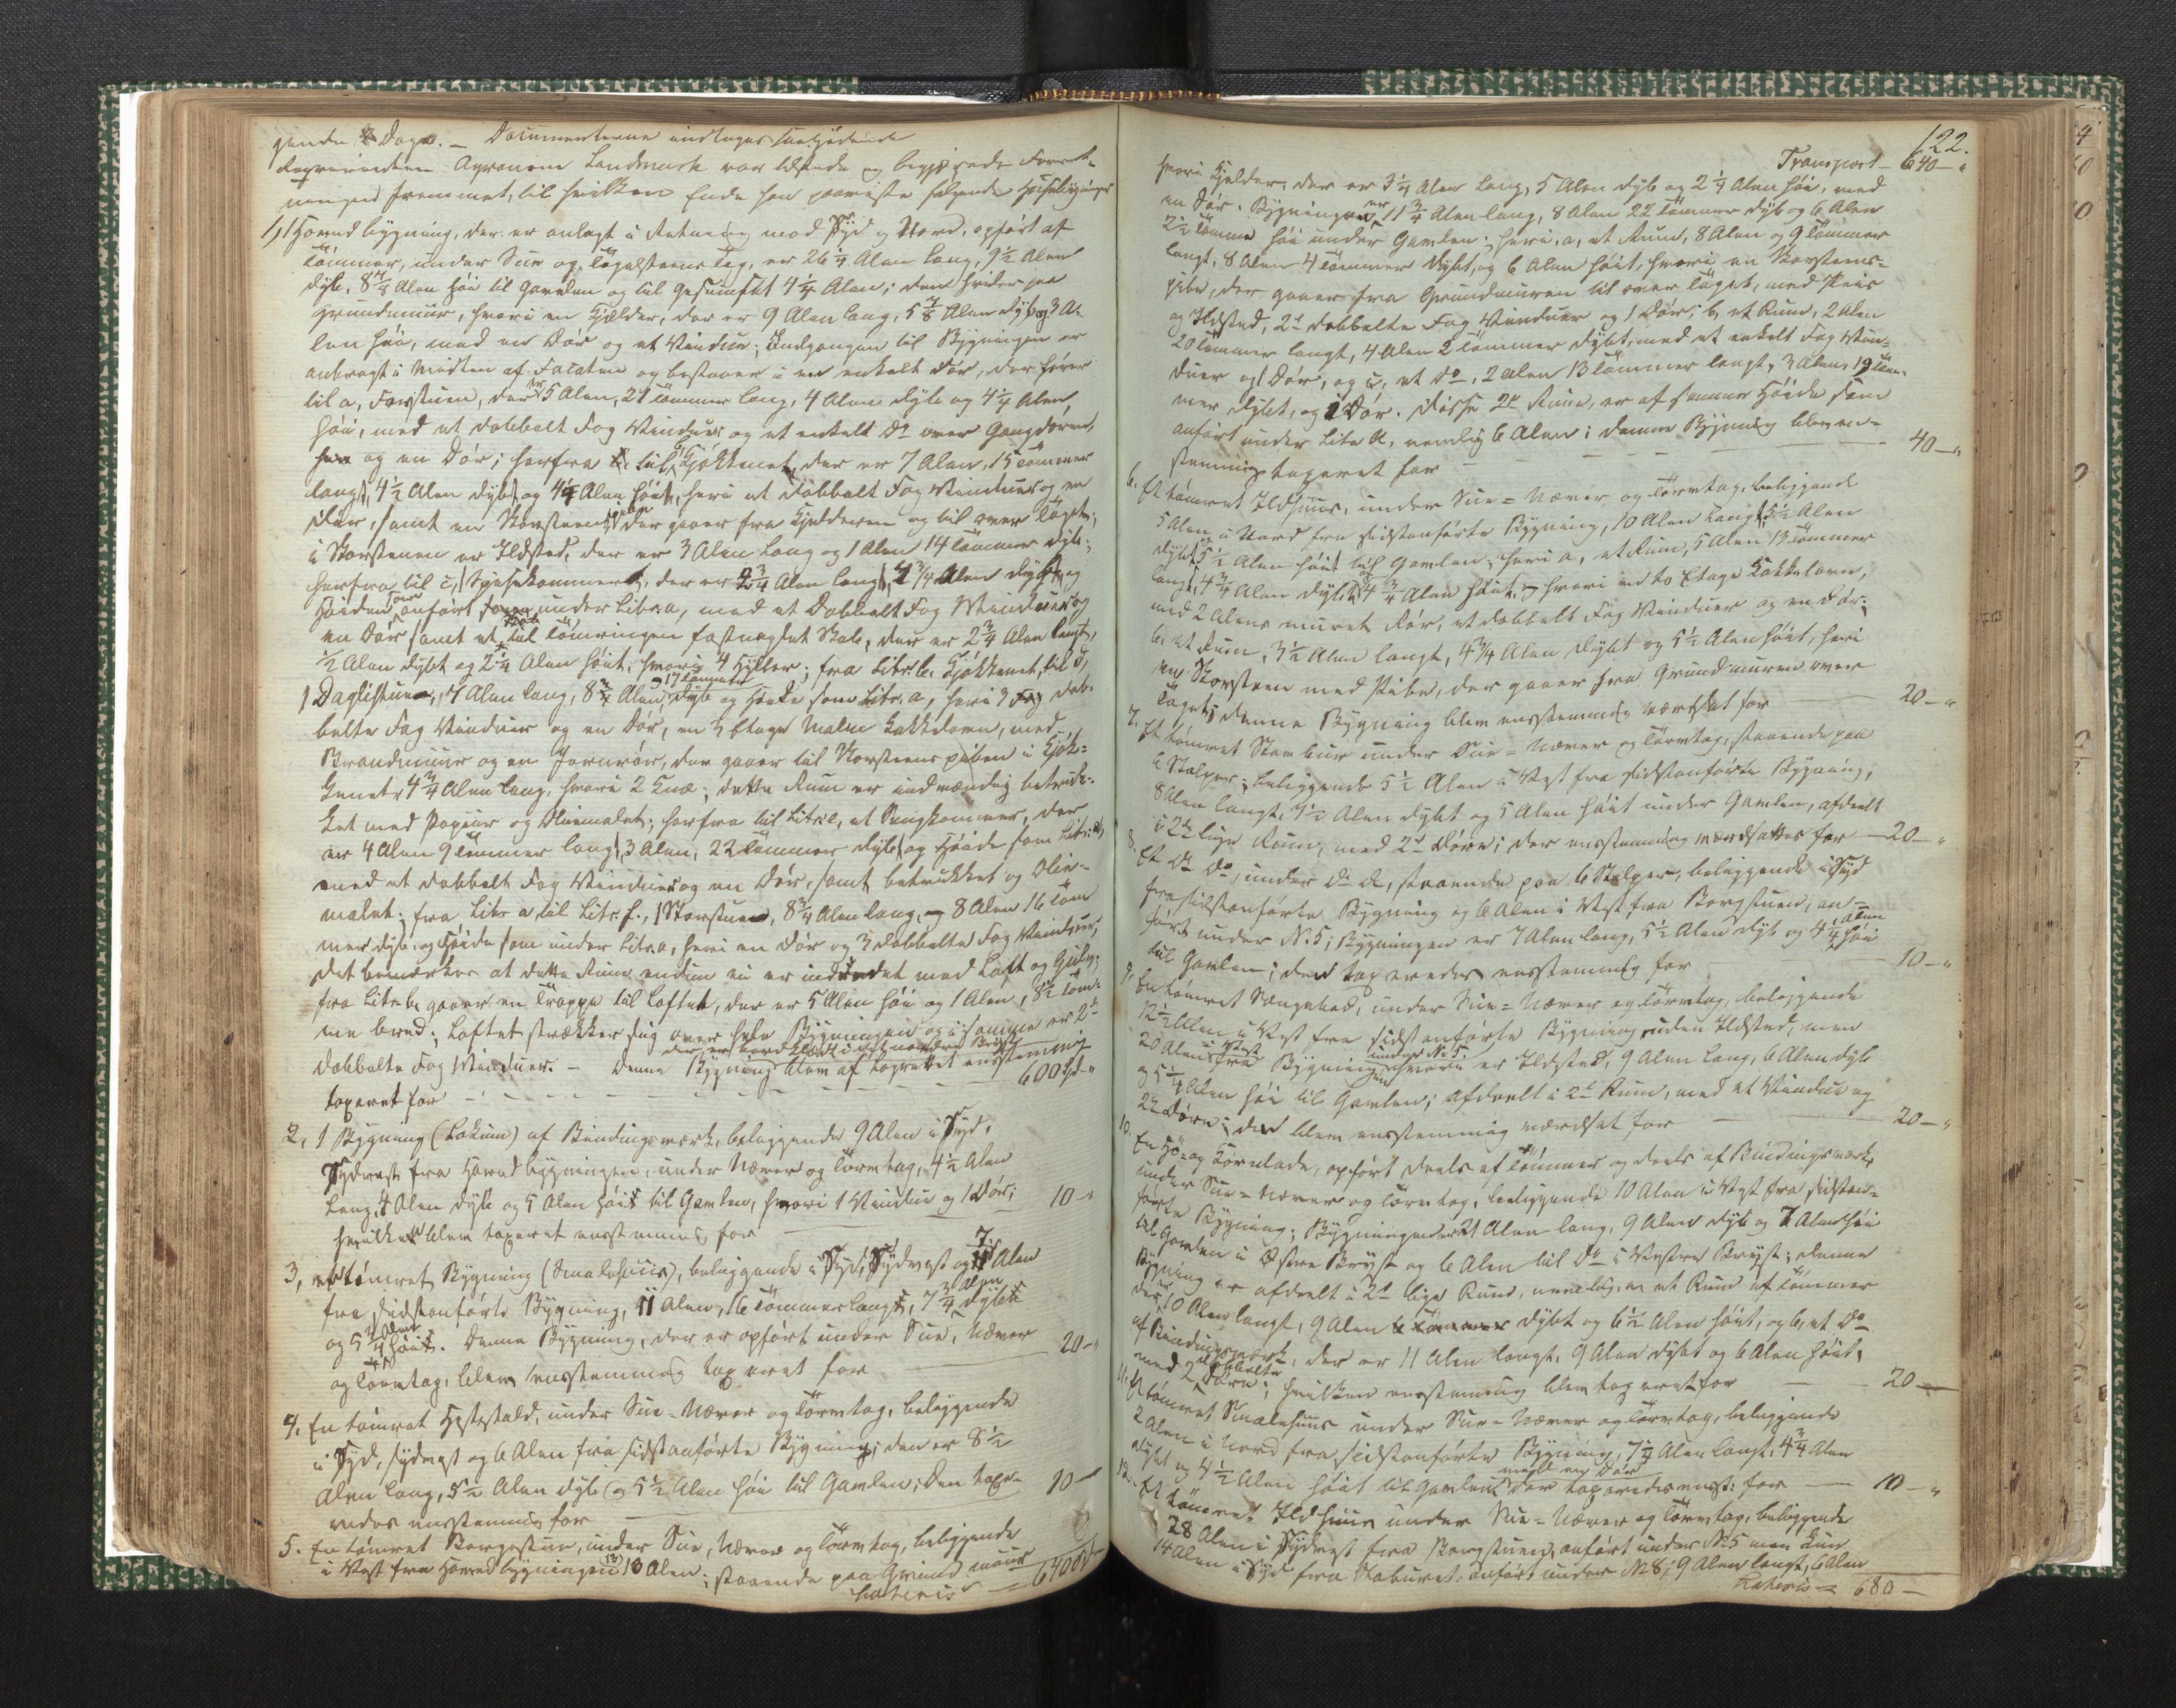 gende 4 Dage. _ Documenterne indtages saalydende
Repræsident Agronom Landmark var tilstede og begjærede Forret-
ningen fremmet, til hvilken Ende han paaviste følgende Huusbygninger
1, 1 Hoved bygning, der er anlagt i Retning mod Syd og Nord, opført af
Tömmer, under Sue og Tegelsteens Tag, er 26 1/4 Alen lang, 9 1/2 Alen
dyb, 8 3/4 Alen høi til Gamlen og til Gesimset 4 1/4 Alen; den hviler paa
Grundmuur, hvori en Kjelder, der er 9 Alen lang, 5 7/8 Alen dyb og 3 A-
len høi, med en Dør og et Vindue; Indgangen til Bygningen er
anbragt i Midten af Facaden og bestaaer i en enkelt Dør, der fører
til a, Forstuen, der er 5 Alen, 21 Tommer lang, 4 Alen dyb og 4 1/4 Alen
høi, med et dobbelt Fag Vinduer og et enkelt Do over Gangdøren,
og en Dør; herfra til b, Kjøkkenet, der er 7 Alen, 15 Tommer
langt, 4 1/2 Alen dybt og 4 1/4 Alen høit, heri et dobbelt Fag Vinduer og en
Dør, samt en Skorsteenspibe der gaaer fra Kjelderen og til over Taget;
i Skorstenen er Ildsted, der er 3 Alen lang og 1 Alen 14 Tommer dyb;
herfra til c, 1 Spiisekammer, der er 2 3/4 Alen langt, 4 3/4 Alen dybt og
Høiden som anført under Litr. a, med et Dobbelt Fag Vinduer og
en Dør samt et til Tømringen fastnaglet Skab, der er 2 3/4 Alen langt,
1/2 Alen dybt og 2 1/4 Alen høit, hvori 4 Hylder; fra Litr. b. Kjøkkenet, til d,
17 Tommer
1 Daglistue, 7 Alen lang, 8 Alen, dyb og Høide som Litr. a, heri 3 dob-
belte Fag Vinduer og en Dør, en 3 Etages Malm Kakkelovn, med
Brandmuur og en Jernrør, der gaaer til Skorsteens piben i Kjøk-
kenet 4 3/4 Alen lang, hvori 2 Knæ; dette Rum er indvændig betruk-
ket med Papiir og Oliemalet; herfra til Litr. e, et Sengkammer, der
er 4 Alen 9 Tommer lang, 3 Alen, 22 Tommer dybt og Høide som Litr. a,
med et dobbelt Fag Vinduer og en Dør, samt betrukket og Olie-
malet; fra Litr a til Litr. f., 1 Storstue, 8 3/4 Alen lang, 8 Alen 16 Tom
mer dyb og Høide som under Litr. a, heri en Dør og 3 dobbelte Fag Vinduer,
det bemærkes at dette Rum endnu ei er indredet med Loft og Gulv;
fra Litr. b. gaaer en Trappe til Loftet, der er 5 Alen høi og 1 Alen, 8 1/2 Tom-
me bred; Loftet strækker sig over hele Bygningen og i samme er 2de
dobbelte Fag Vinduer. – Denne Bygning blev af Lagrettet eensstemmig
der er bordklædt i det nordre Bryst
taxeret for – – – – – – 600 Spd "
2, 1 Bygning (Lokum) af Bindingsværk, beliggende 9 Alen i Syd,
Sydvest fra Hovedbygningen, under Næver og Torvtag, 4 1/2 Alen
lang, 4 Alen dyb og 5 Alen høi til Gamlen, hvori 1 Vindue og 1 Dør;
hvilken blev taxeret eenstemmig for – 10 – "
3, et tømret Bygning (Smalehuus), beliggende i Syd, Sydvest og 7 Alen
fra sidstanførte Bygning, 11 Alen, 16 Tommer lang, 7 3/4 Alen dyb
og 5 3/4 Alen høi. Denne Bygning, der er opført under Sue, Næver
og Torvtag, blev eensstemmig taxeret for 20 – "
4. En tømret Hestestald, under Sue-Næver og Torvtag, beliggende
i Syd, Sydvest og 6 Alen fra sidstanførte Bygning; den er 8 1/2
Alen lang, 5 1/2 Alen dyb og 5 1/2 Alen høi til Gamlen; den taxe-
redes eensstemmig for – 10 –
5. En tømret Borgestue, under Sue, Næver og Torvtag, beliggende
i Vest fra Hovedbygningen 13 Alen; staaende paa Grundmuur
Lateris – 640 Spd
122.
Transport – 640 – "
hvori Kjelder, der er 3 1/4 Alen lang, 5 Alen dyb og 2 1/4 Alen høi, med
en Dør. Bygningen er 11 3/4 Alen lang, 8 Alen 22 Tommer dyb og 6 Alen
2 1/2 Tomme høi under Gamlen; heri, a, et Rum, 8 Alen og 9 Tommer
langt, 8 Alen 4 Tommer dybt, og 6 Alen høit, hvori en Skorsteens-
pibe, der gaaer fra Grundmuren til over Taget, med Priis
og Ildsted, 2de dobbelte Fag Vinduer og 1 Dør; b, et Rum, 2 Alen
20 Tommer langt, 4 Alen 2 Tommer dybt, med et enkelt Fag Vin-
duer og 1 Dør, og c, et do, 2 Alen 13 Tommer langt, 3 Alen, 19 Tom-
mer dybt, og 1 Dør. Disse 2de Rum, er af samme Høide som
anført under Litr a, nemlig 6 Alen; denne Bygning blev een-
stemmig taxeret for – – – – – 40 – "
6. Et tømret Ildhuus, under Sue-Næver og Torvtag, beliggende
5 Alen i Nord fra sidstanførte Bygning, 10 Alen langt, 5 1/2 Alen
dybt, 5 1/2 Alen høit til Gamlen; heri a, et Rum, 5 Alen 13 Tommer
langt, 4 3/4 Alen dybt, 4 3/4 Alen høit, hvori en to Etages Kakkelovn,
med 2 Alens muret Rør, et dobbelt Fag Vinduer og en Dør;
b, et Rum, 3 1/2 Alen langt, 4 3/4 Alen dybt og 5 1/2 Alen høit, heri
en Skorsteen med Pibe, der gaaer fra Grundmuren over
Taget; denne Bygning blev eensstemmig værdsat for – 20 – "
7. Et tømret Stabur under Sue-Næver og Torvtag, staaende paa
6 Stolper; beliggende 5 1/2 Alen i Vest fra sidstanførte Bygning,
8 Alen langt, 4 1/2 Alen dybt og 5 Alen høit under Gamlen, afdeelt
i 2de lige Rum, med 2de Døre; der eensstemmig værdsattes for – 20 – "
8. Et do do, under do do, staaende paa 6 Stolper, beliggende i Syd
fra sidstanførte Bygning og 6 Alen i Vest fra Borgstuen, an-
ført under N. 5; Bygningen er 7 Alen lang, 5 1/2 Alen dyb og 4 1/4 Alen høi
til Gamlen; den taxeredes eensstemmig for – 10 – "
9. En tømret Sengebod, under Sue-Næver og Torvtag, beliggende
12 1/2 Alen i Vest fra sidstanførte Bygning uden Ildsted, men
20 Alen i Vest fra Bygning under No 5 hvori er Ildsted, 9 Alen lang, 6 Alen dyb
og 5 1/4 Alen høi til Gamlen; afdeelt i 2de Rum, med et Vindue og
2de Døre; den blev eensstemmig værdsat for – 20 – "
10. En Hø- og Kornlade, opført deels af Tømmer og deels af Bindingsværk,
under Sue-Næver og Torvtag, beliggende 10 Alen i Vest fra sidstan-
førte Bygning; Bygningen er 21 Alen lang, 9 Alen dyb og 7 Alen høi
til Gamlen i Østre Bryst og 6 Alen til do i Vestre Bryst; denne
Bygning er afdeelt i 2de lige Rum, nemlig, a, et Rum af Tømmer
der er 10 Alen langt, 9 Alen dybt og 6 1/2 Alen høit, og b, et do
af Bindingsværk, der er 11 Alen langt, 9 Alen dybt og 6 Alen høit,
med 2 dobbelte Døre; hvilken eensstemmig blev taxeret for – 20 –
11. Et tømret Smalehuus under Sue-Næver og Torvtag, beliggende
2 Alen i Nord fra sidstanførte Bygning, 7 1/4 Alen langt, 4 3/4 Alen
dybt og 4 1/2 Alen høit til Gamlen med en Dør der taxeredes eenst: for – 10 – "
12. Et tømret Ildhuus under Sue-Næver og Torvtag, beliggende
28 Alen i Sydvest fra Borgstuen, anført under No 5 men kun
14 Alen i Syd fra Staburet, anført under No 8; 9 Alen langt, 6 Alen
Lateris – 680 –